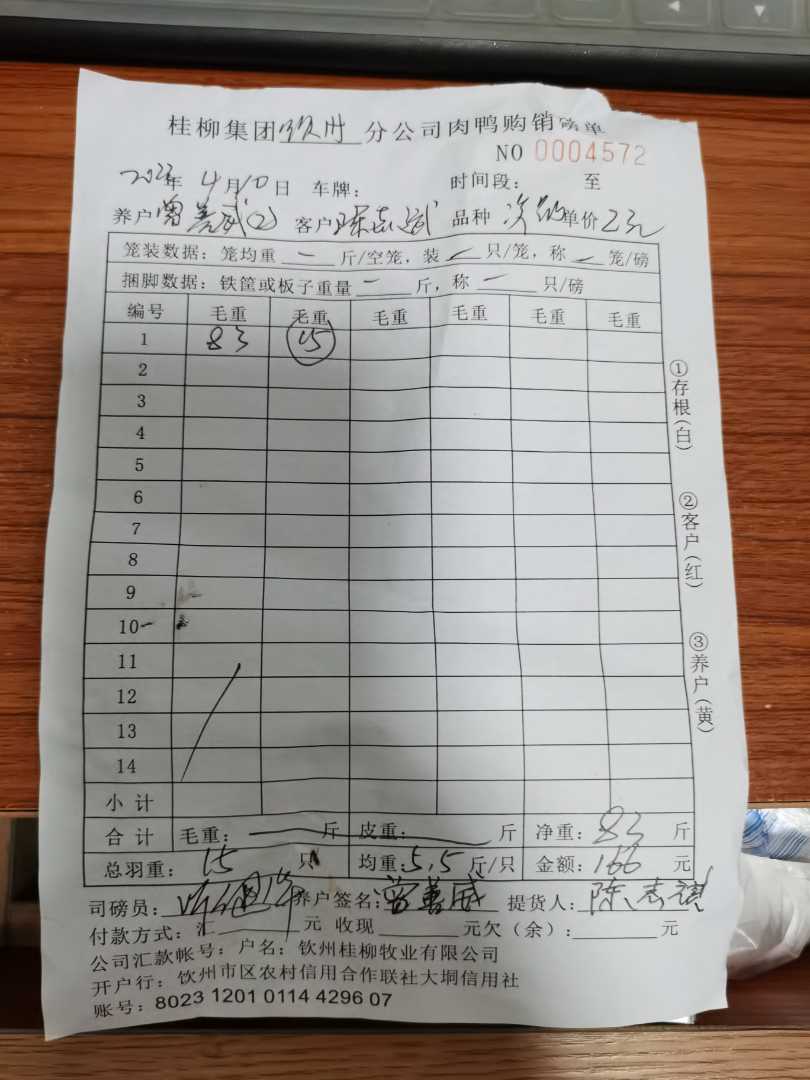 桂柳集团钦州分公司肉鸭购销磅单
NO 0004572
2023年4月10日 车牌: 时间段: 至
养户曾善威(2) 客户陈志 品种 次鸭单价2元
笼装数据: 笼均重 — 斤/空笼, 装 — 只/笼, 称 — 笼/磅
捆脚数据: 铁筐或板子重量 — 斤, 称 — 只/磅
编号 毛重 毛重 毛重 毛重 毛重 毛重
1 83 15
2
3
4
5
6
7
8
9
10
11
12
13
14
小计
合计 毛重: — 斤 皮重: — 斤 净重: 83 斤
总羽重: 15 只 均重: 5.5 斤/只 金额: 166 元
司磅员: 养户签名: 曾善威 提货人: 陈志祺
付款方式: 汇 元 收现 元欠(余): 元
公司汇款帐号: 户名: 钦州桂柳牧业有限公司
开户行: 钦州市区农村信用合作联社大垌信用社
账号: 8023 1201 0114 4296 07
①存根(白)
②客户(红)
③养户(黄)